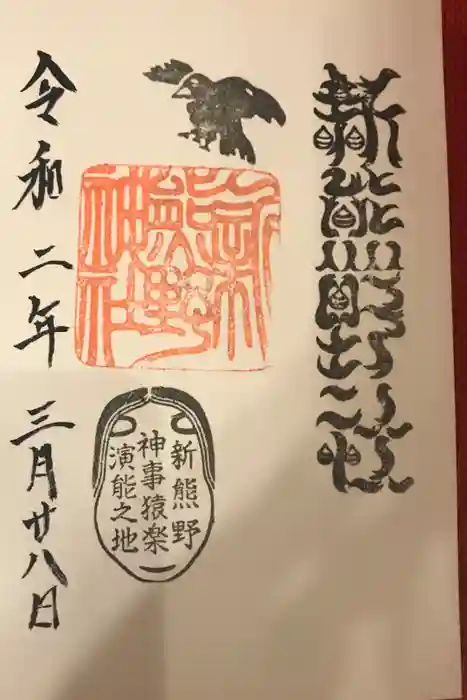 新熊野
新
熊野
神社
新熊野
神事猿楽
演能之地
令和二年三月廿八日